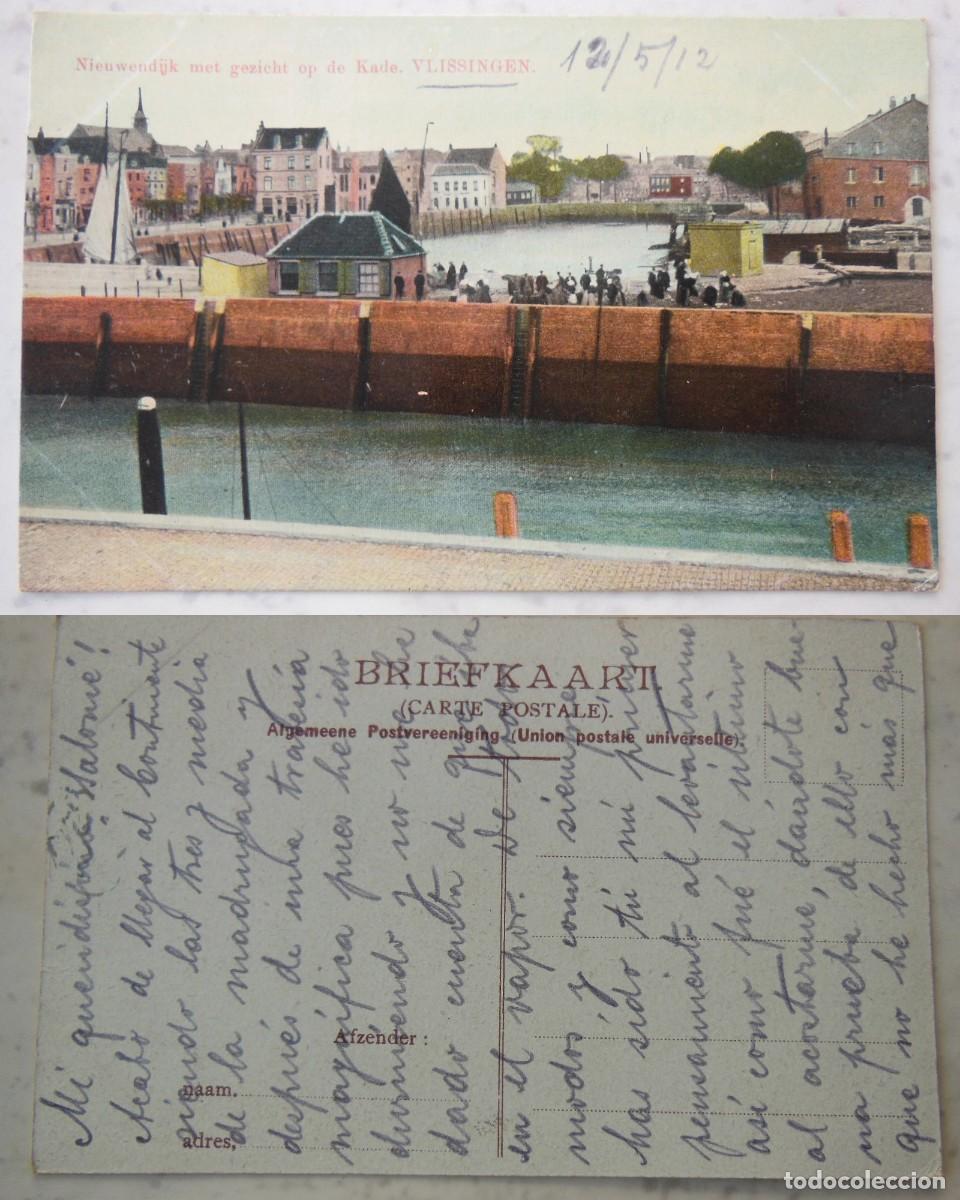 Nieuwendijk met gezicht op de Kade. VLISSINGEN. 12/5/12
BRIEFKAART.
(CARTE POSTALE).
Algemeene Postvereeniging (Union postale universelle).
Afzender:
naam.
adres,
Mi queridísima Salomé!
Acabo de llegar al Continente
siendo las tres y media
de la madrugada y
después de una travesía
magnífica pues he ido
durmiendo y no me he
dado cuenta de que iba
en el vapor. De todos
modos y como siempre
has sido tú mi primer
pensamiento al levantarme
así como fué el último
al acostarme, dándote bue-
na prueba de ello con
que no he hecho más que
todocoleccion